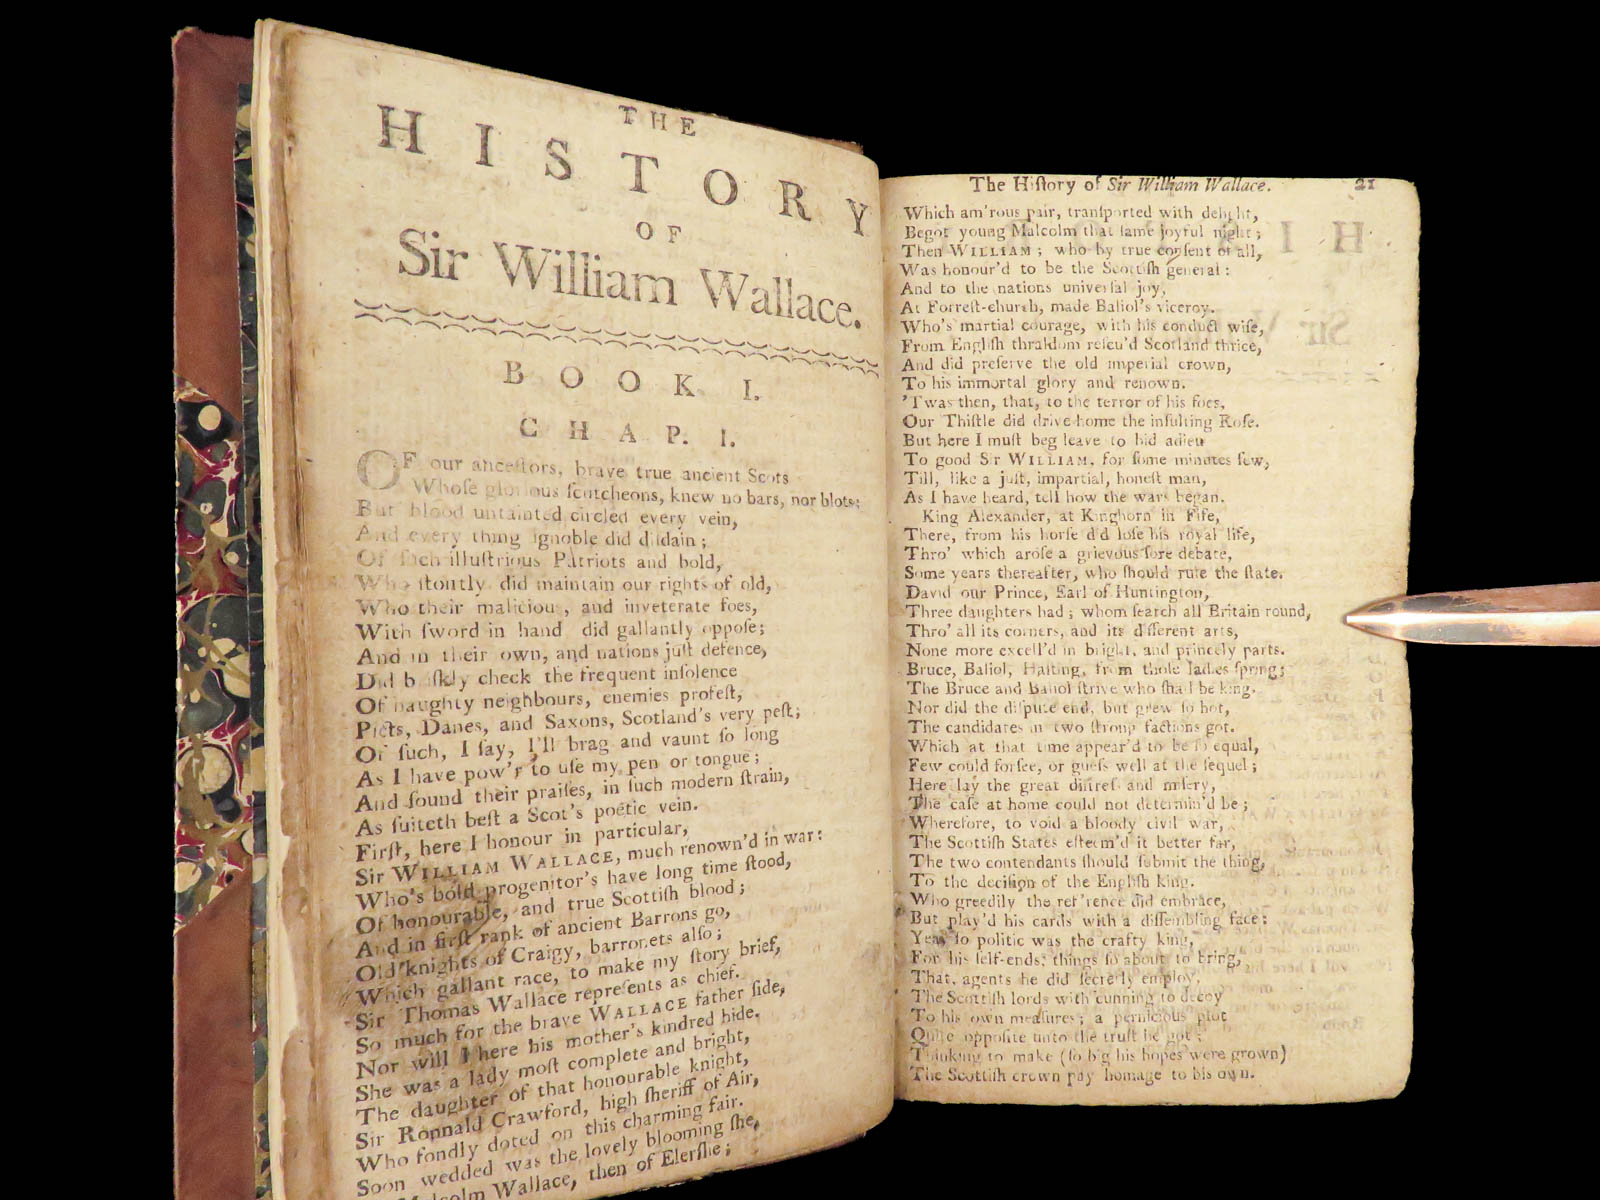 THE
HISTORY
OF
Sir William Wallace.
BOOK I.
CHAP. I.
OF our anceſtors, brave true ancient Scots
Whoſe glorious ſcutcheons, knew no bars, nor blots;
But blood untainted circled every vein,
And every thing ignoble did diſdain;
Of ſuch illuſtrious Patriots and bold,
Who ſtoutly did maintain our rights of old,
Who their maliciou, and inveterate foes,
With ſword in hand did gallantly oppoſe;
And in their own, and nations juſt defence,
Did briſkly check the frequent inſolence
Of haughty neighbours, enemies profeſt,
Picts, Danes, and Saxons, Scotland's very peſt;
Of ſuch, I ſay, I'll brag and vaunt ſo long
As I have pow'r to uſe my pen or tongue;
And ſound their praiſes, in ſuch modern ſtrain,
As ſuiteth beſt a Scot's poetic vein.
Firſt, here I honour in particular,
Sir WILLIAM WALLACE, much renown'd in war:
Who's bold progenitor's have long time ſtood,
Of honourable, and true Scottiſh blood;
And in firſt rank of ancient Barrons go,
Old knights of Craigy, barronets alſo;
Which gallant race, to make my ſtory brief,
Sir Thomas Wallace repreſents as chief.
So much for the brave WALLACE father ſide,
Nor will I here his mother's kindred hide.
She was a lady moſt complete and bright,
The daughter of that honourable knight,
Sir Ronnald Crawford, high ſheriff of Air,
Who fondly doted on this charming fair.
Soon wedded was the lovely blooming ſhe,
Malcolm Wallace, then of Elerſlie;
The Hiſtory of Sir William Wallace. 21
Which am'rous pair, tranſported with delight,
Begot young Malcolm that ſame joyful night;
Then WILLIAM; who by true conſent of all,
Was honour'd to be the Scottiſh general:
And to the nations univerſal joy,
At Forreſt-church, made Baliol's viceroy.
Who's martial courage, with his conduct wiſe,
From Engliſh thraldom reſcu'd Scotland thrice,
And did preſerve the old imperial crown,
To his immortal glory and renown.
'Twas then, that, to the terror of his foes,
Our Thiſtle did drive home the inſulting Roſe.
But here I muſt beg leave to bid adieu
To good Sir WILLIAM, for ſome minutes few,
Till, like a juſt, impartial, honeſt man,
As I have heard, tell how the wars began.
King Alexander, at Kinghorn in Fife,
There, from his horſe did loſe his royal life,
Thro' which aroſe a grievous ſore debate,
Some years thereafter, who ſhould rule the ſtate.
David our Prince, Earl of Huntington,
Three daughters had; whom ſearch all Britain round,
Thro' all its corners, and its different arts,
None more excell'd in bright, and princely parts.
Bruce, Baliol, Haſting, from thoſe ladies ſpring;
The Bruce and Baliol ſtrive who ſhall be king.
Nor did the diſpute end, but grew ſo hot,
The candidates in two ſtrong factions got.
Which at that time appear'd to be ſo equal,
Few could forſee, or gueſs well at the ſequel;
Here lay the great diſtreſs and miſery,
The caſe at home could not determin'd be;
Wherefore, to void a bloody civil war,
The Scottiſh States eſteem'd it better far,
The two contendants ſhould ſubmit the thing,
To the deciſion of the Engliſh king.
Who greedily the ref'rence did embrace,
But play'd his cards with a diſſembling face:
Yea, ſo politic was the crafty king,
For his ſelf-ends; things ſo about to bring,
That, agents he did ſecretly employ,
The Scottiſh lords with cunning to decoy
To his own meaſures; a pernicious plot
Quite oppoſite unto the truſt he got;
Thinking to make (ſo big his hopes were grown)
The Scottiſh crown pay homage to his own.